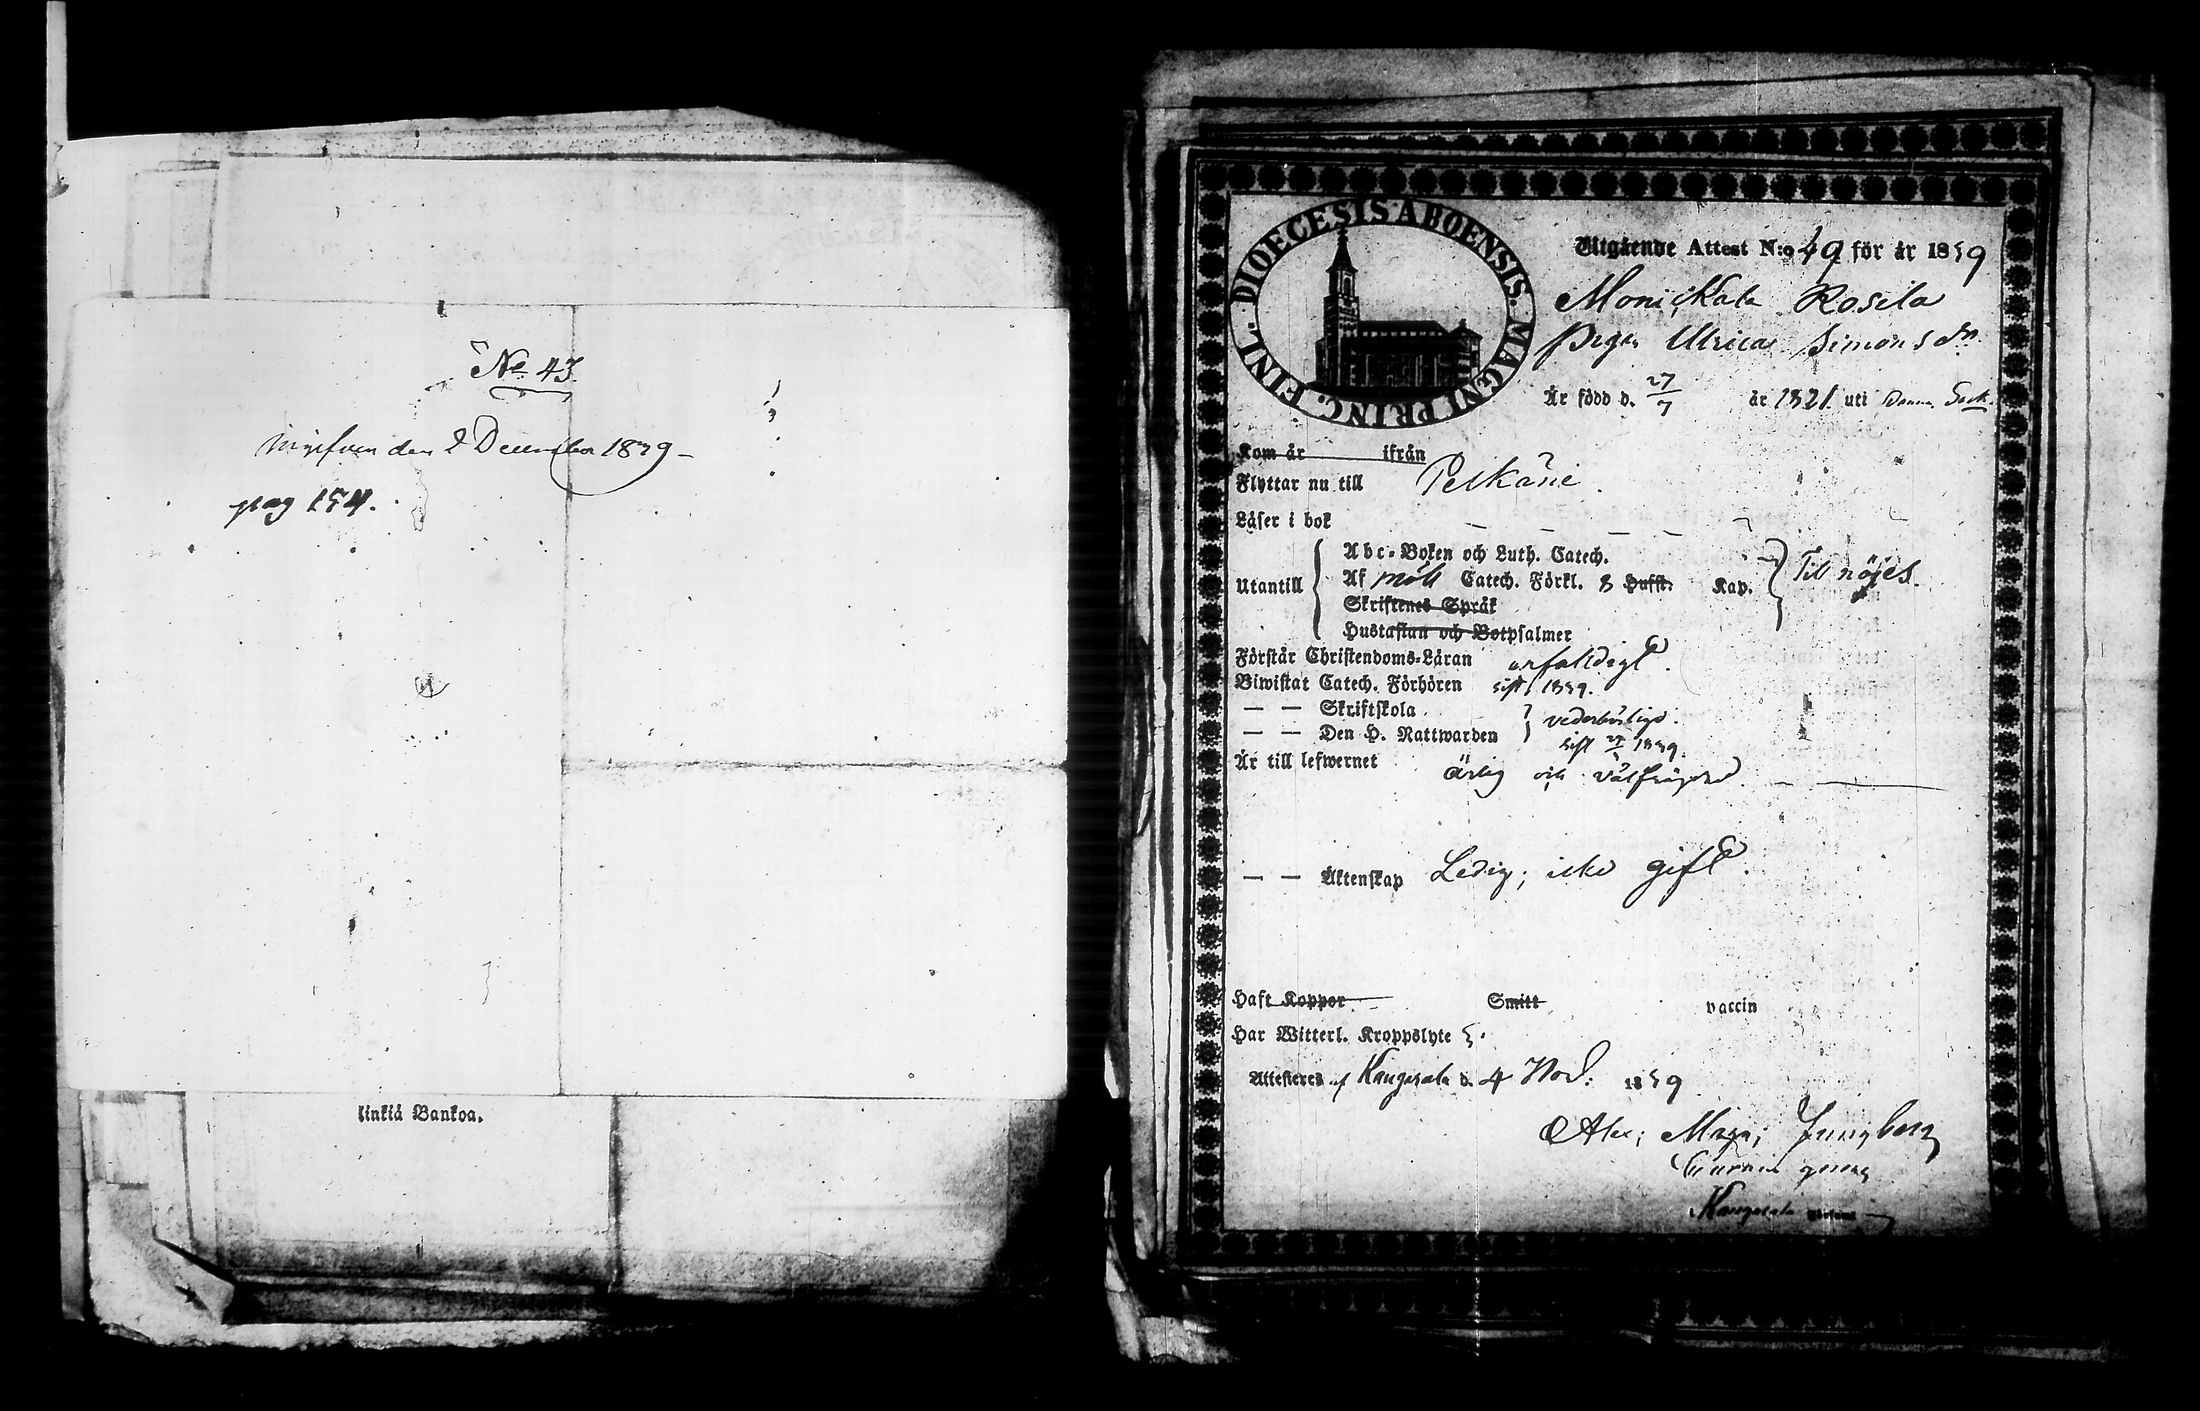 No 43.
Ingifven den 2 December 1839
pag 154.
linkiä Bankoa.
DIOECESIS ABOENSIS. MAGNI PRINC. FINL.
Utgående Attest N:o 49 för år 1839
Rosila
Pigan Ulrica Simonsdr.
Är född d. 27/7 år 1821. uti Denna Sock.
Kom år ifrån
Flyttar nu till Pelkäne.
Läser i bok
Abc-Boken och Luth. Catech.
Utantill Af Catech. Förkl. Hufst. Kap. Till nöjes.
Skriftenes Språk
Hustaflan och Botpsalmer
Förstår Christendoms-Läran enfaldigt.
Biwistat Catech. Förhören sist 1839.
— — Skriftskola
— — Den H. Nattwarden vederbörligt.
sist 1839.
Är till lefwernet ärlig och välfrägdad.
— — Äktenskap Ledig; icke gift.
Haft Koppor Smitt vaccin
Har Witterl. Kroppslyte
Attesteres af Kangasala d. 4 Nov. 1839
Alex; Magn; Ljungberg
Kangasala